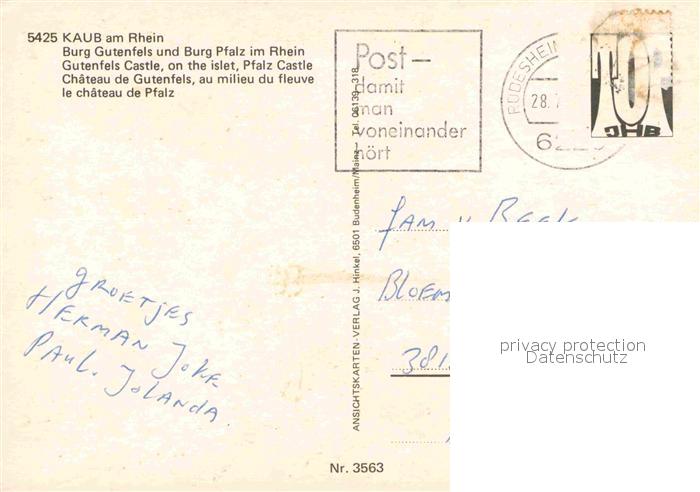 5425 KAUB am Rhein
Burg Gutenfels und Burg Pfalz im Rhein
Gutenfels Castle, on the islet, Pfalz Castle
Château de Gutenfels, au milieu du fleuve
le château de Pfalz
Post–
damit
man
voneinander
hört
RÜDESHEIM
28.7
JHB
ANSICHTSKARTEN-VERLAG J. Hinkel, 6501 Budenheim/Mainz – Tel. 06139 - 318
Fam v Beek
Bloem
381
GROETJES
HERMAN JOKE
PAUL. JOLANDA
privacy protection
Datenschutz
Nr. 3563